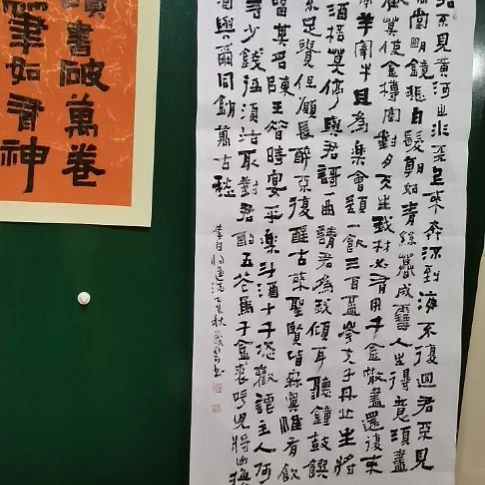 君不見黃河之水天上來奔流到海不復迴君不見
堂明鏡悲白髮朝如青絲暮成雪人生得意須盡
歡莫使金樽空對月天生我材必有用千金散盡還復來
羊宰牛且為樂會須一飲三百盃岑夫子丹丘生將
酒杯莫停與君歌一曲請君為我傾耳聽鐘鼓饌
不足貴但願長醉不復醒古來聖賢皆寂寞惟有飲
留其名陳王昔時宴平樂斗酒十千恣歡謔主人何
言少錢徑須沽取對君酌五花馬千金裘呼兒將出換
酒與爾同銷萬古愁
李白將進酒乙巳秋
讀書破萬卷
筆如有神